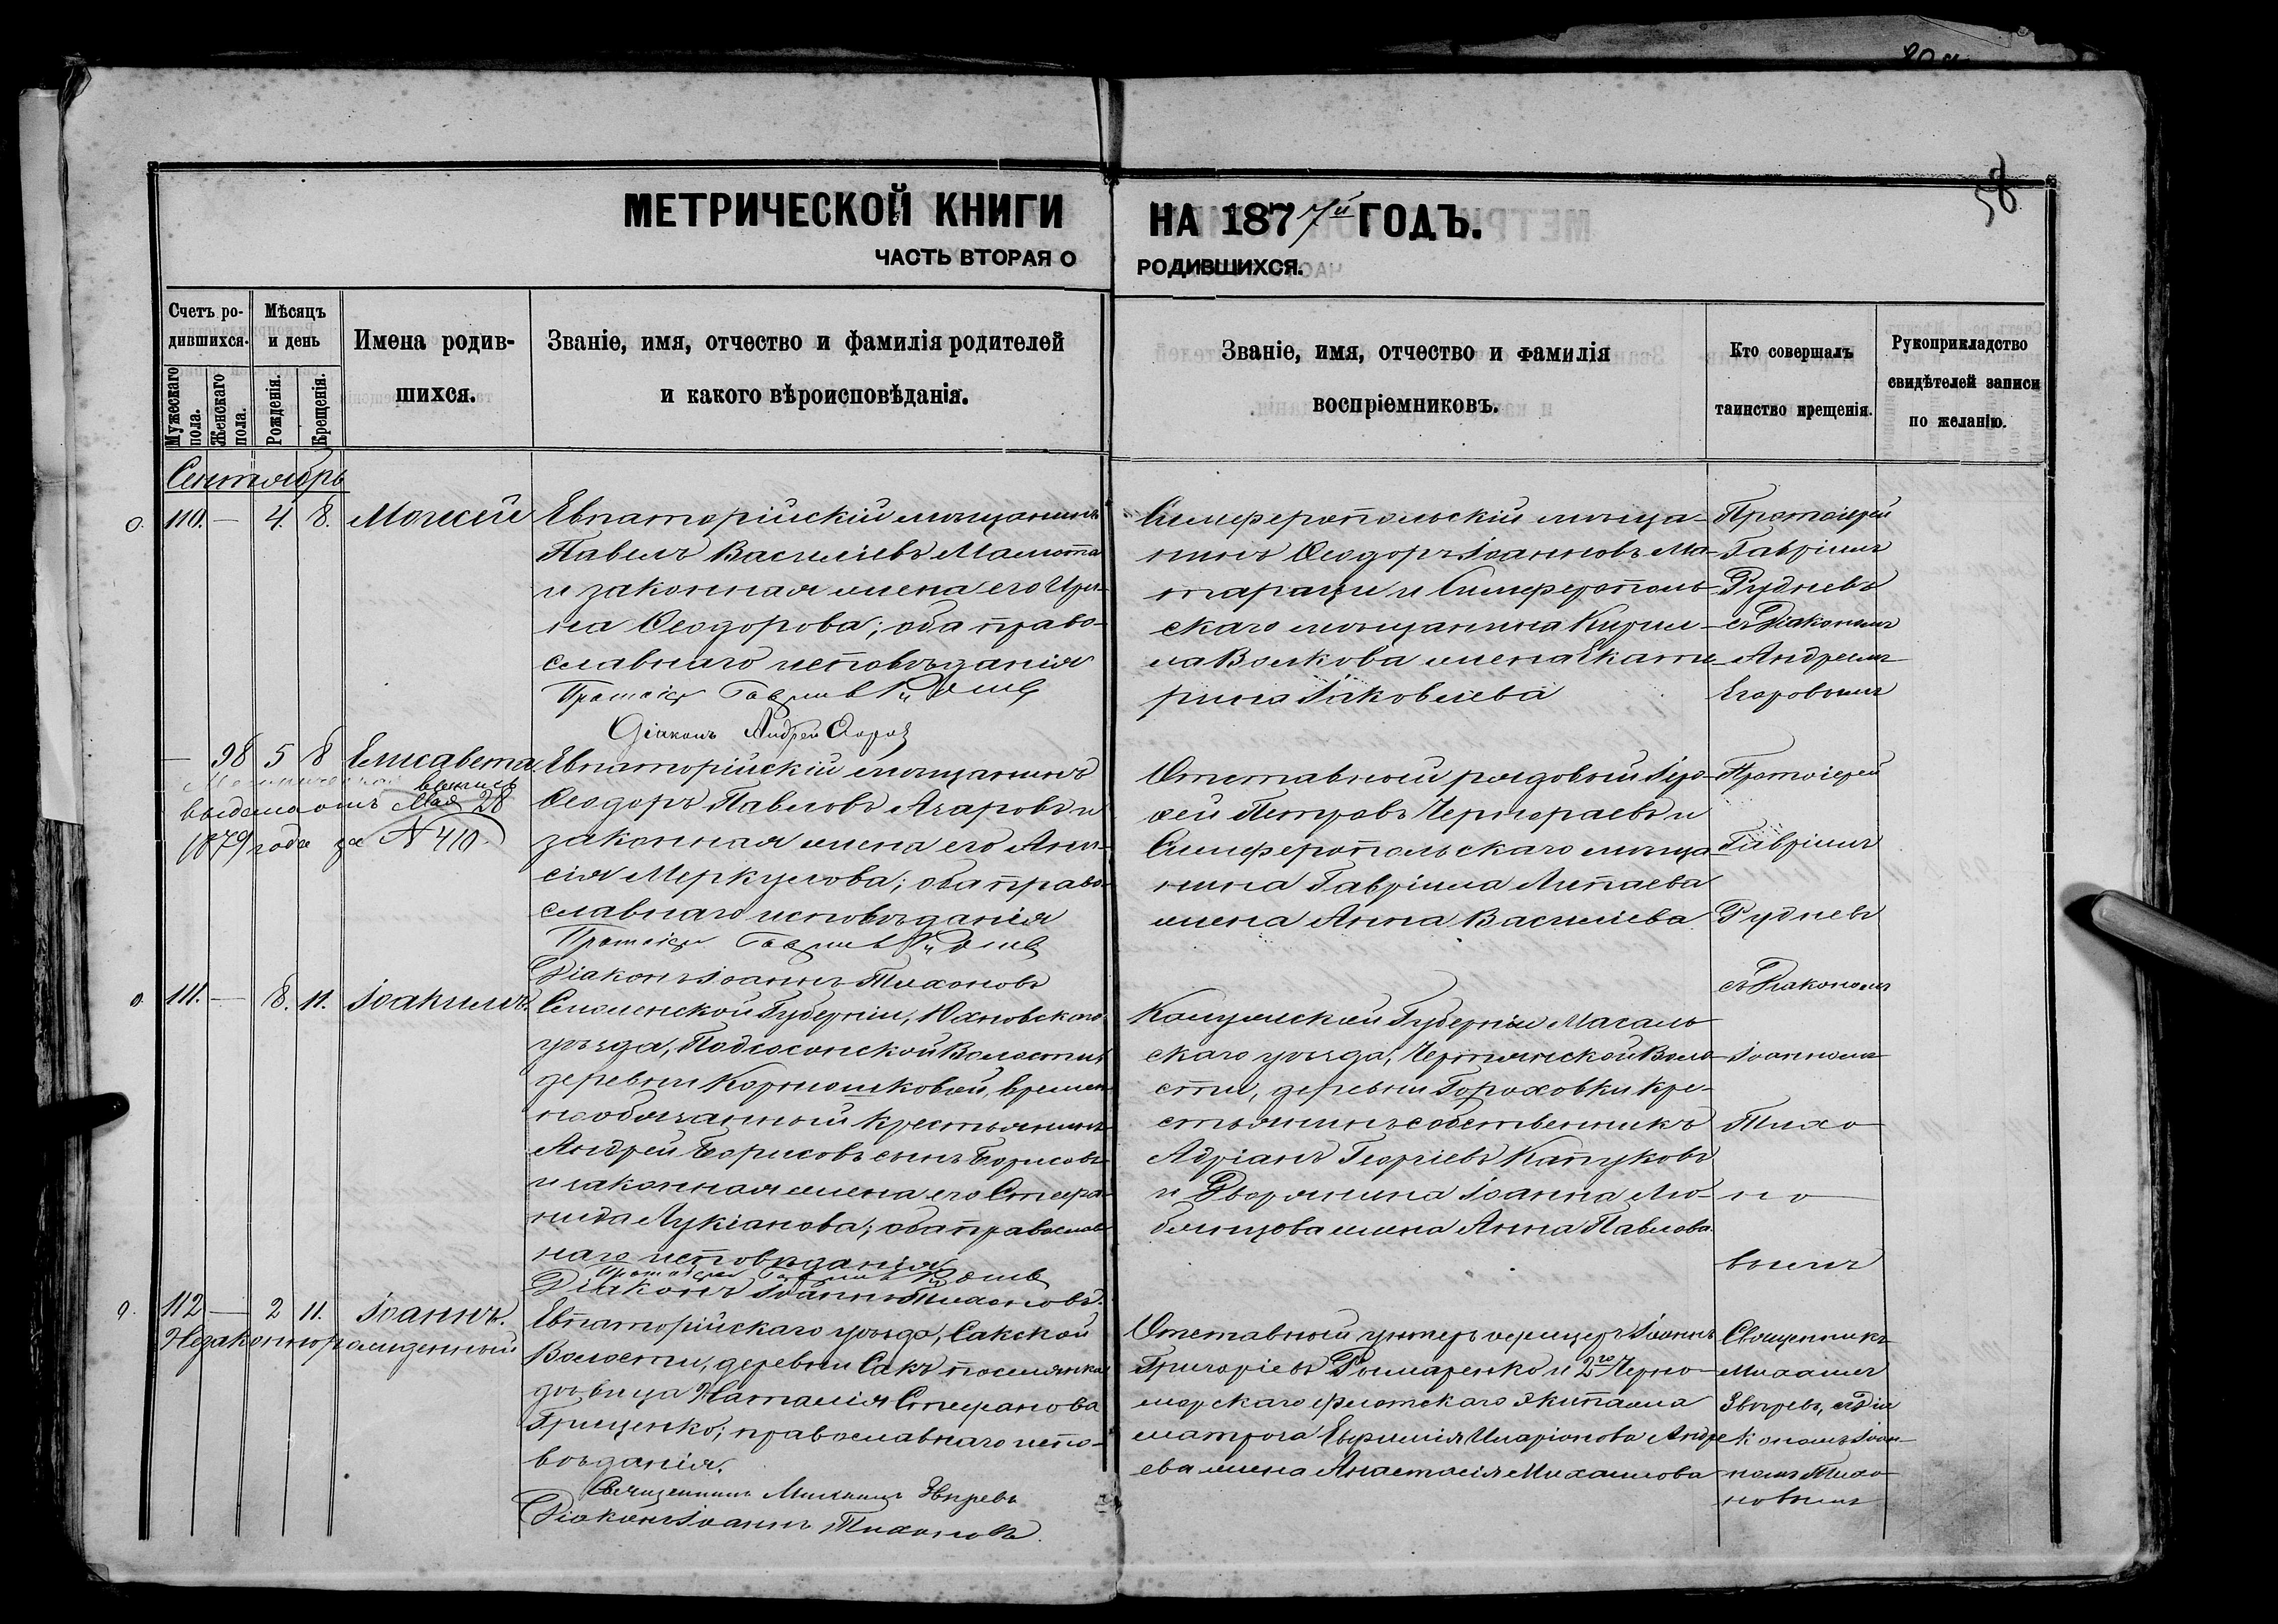 58
МЕТРИЧЕСКОЙ КНИГИ НА 1877й ГОДЪ.
ЧАСТЬ ВТОРАЯ О РОДИВШИХСЯ.
Счетъ ро-
дившихся.
Мужескаго пола.
Женскаго пола.
Мѣсяцъ
и день
Рожденія.
Крещенія.
Имена родив-
шихся.
Званіе, имя, отчество и фамилія родителей
и какого вѣроисповѣданія.
Званіе, имя, отчество и фамилія
воспріемниковъ.
Кто совершалъ
таинство крещенія.
Рукоприкладство
свидѣтелей записи
по желанію.
Сентябрь
0. 110. — 4. 8. Моисей
Евпаторійскій мѣщанинъ
Павелъ Василіевъ
и законная жена его Ири-
на Ѳеодорова; оба право-
славнаго исповѣданія
Протоіер Гавриил
Діаконъ Андрей
Симферопольскій мѣща-
нинъ Ѳеодоръ Іоанновъ Ма-
и Симферополь-
скаго мѣщанина Кирил-
ла Волкова жена Екате-
рина Іаковлева
Протоіерей
Гавріилъ
Рудневъ
съ Діакономъ
Андреемъ
Егоровымъ
— 98 5 8 Елисавета
выпись
выдана отъ Мая 28
1879 года за N 410
Евпаторійскій мѣщанинъ
Ѳеодоръ Павловъ Азаровъ и
законная жена его Ани-
сія Меркулова; оба право-
славнаго исповѣданія
Протоіер Гавриил
Діаконъ Іоаннъ Тихоновъ
Отставной рядовой
Петровъ и
Симферопольскаго мѣща-
нина Гавріила Липаева
жена Анна Василіева
Протоіерей
Гавріилъ
Рудневъ
съ Діакономъ
Іоанномъ
Тихо-
но-
вымъ
0. 111. — 8. 11. Іоакимъ.
Смоленской Губерніи, Юхновскаго
уѣзда, Подсосонской Волости
деревни Корнюшковой, времен-
нообязанный крестьянинъ
Андрей Борисовъ сынъ Борисовъ
и законная жена его Стефа-
нида Лукіанова; оба православ-
наго исповѣданія
Протоіерей Гавриил
Діаконъ Іоаннъ Тихоновъ.
Калужской Губерніи Масаль-
скаго уѣзда, Воло-
сти, деревни Гороховки кре-
стьянинъ собственникъ
Адріанъ Георгіевъ Капуковъ
и Дворянина Іоанна Лю-
жена Анна Павлова.
0. 112 — 2 11. Іоаннъ.
Незаконнорожденный
Евпаторійскаго уѣзда, Сакской
Волости, деревни Сакъ поселянка
дѣвица Наталія Стефанова
Грищенко; православнаго испо-
вѣданія.
Священникъ Михаилъ Звѣревъ
Діаконъ Іоаннъ Тихоновъ.
Отставной унтеръ офицеръ Іоаннъ
Григоріевъ Рымаренко и 2го Черно-
морскаго флотскаго экипажа
матроса Евфимія Иларіонова Андре-
ева жена Анастасія Михаилова
Священникъ
Михаилъ
Звѣревъ, съ Діа-
кономъ Іоан-
номъ Тихо-
новымъ